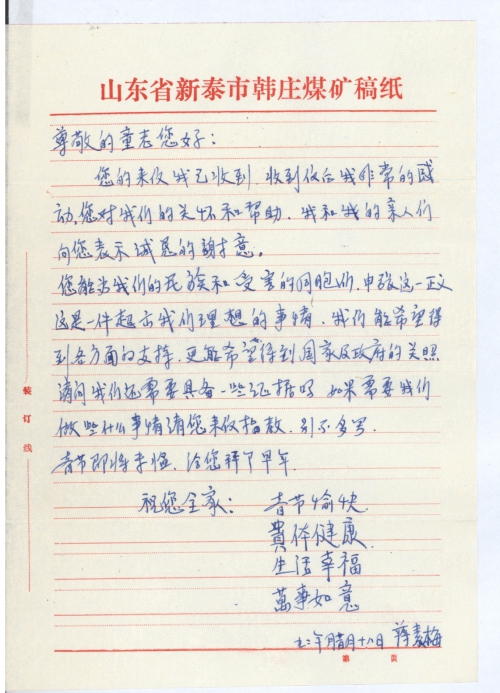 山东省新泰市韩庄煤矿稿纸
尊敬的童志您好：
您的来信我已收到，收到信后我非常的感
动，您对我们的关怀和帮助，我和我的亲人们
向您表示诚恳的谢意。
您能为我们的民族和受害的同胞们，申张这一正义
这是一件起示我们理想的事情，我们能希望得
到各方面的支持，更能希望得到国家及政府的关照
请问我们还需要具备一些证据吗 如果需要我们
做些什么事情请您来信指教，别不多写
春节即将来临，给您拜个早年
祝您全家： 春节愉快
貴体健康
生活幸福
萬事如意
九二年腊月十八日 薛 梅
装订线
第 页